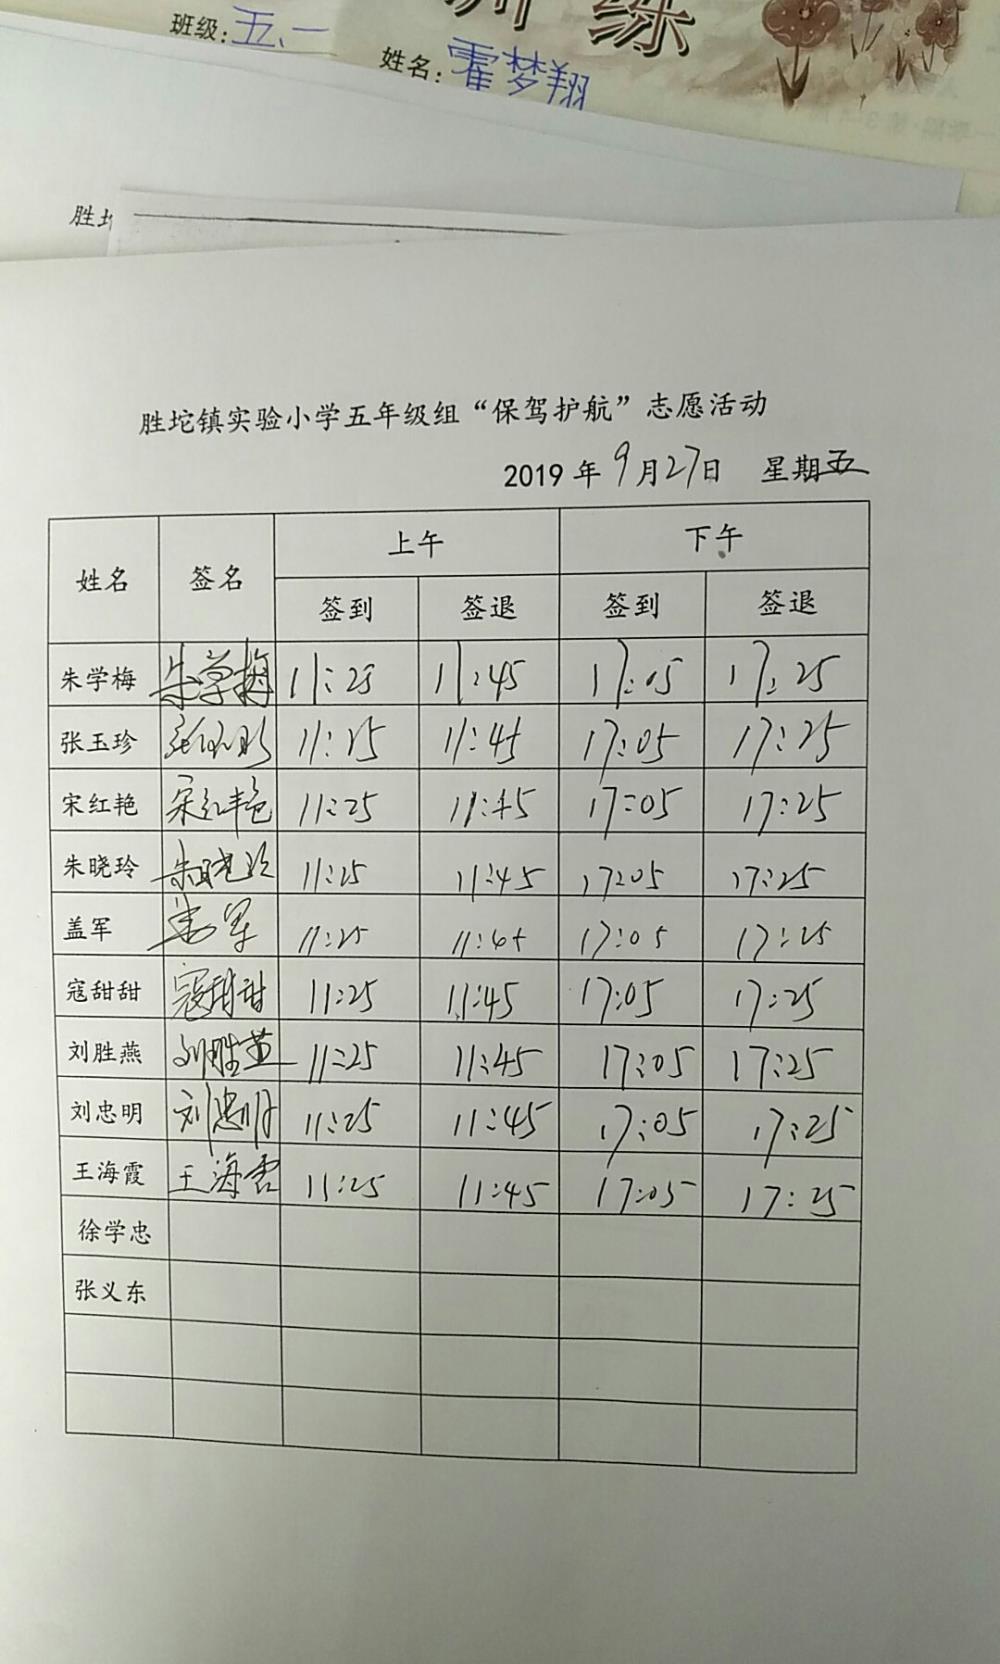 训练
班级：五、一
姓名：霍梦翔
胜坨
胜坨镇实验小学五年级组“保驾护航”志愿活动
2019年9月27日 星期五
姓名 签名 上午 下午
签到 签退 签到 签退
朱学梅 朱学梅 11:25 11:45 17:05 17:25
张玉珍 张玉珍 11:25 11:45 17:05 17:25
宋红艳 宋红艳 11:25 11:45 17:05 17:25
朱晓玲 朱晓玲 11:25 11:45 17:05 17:25
盖军 盖军 11:25 11:45 17:05 17:25
寇甜甜 寇甜甜 11:25 11:45 17:05 17:25
刘胜燕 刘胜燕 11:25 11:45 17:05 17:25
刘忠明 刘忠明 11:25 11:45 17:05 17:25
王海霞 王海霞 11:25 11:45 17:05 17:25
徐学忠
张义东